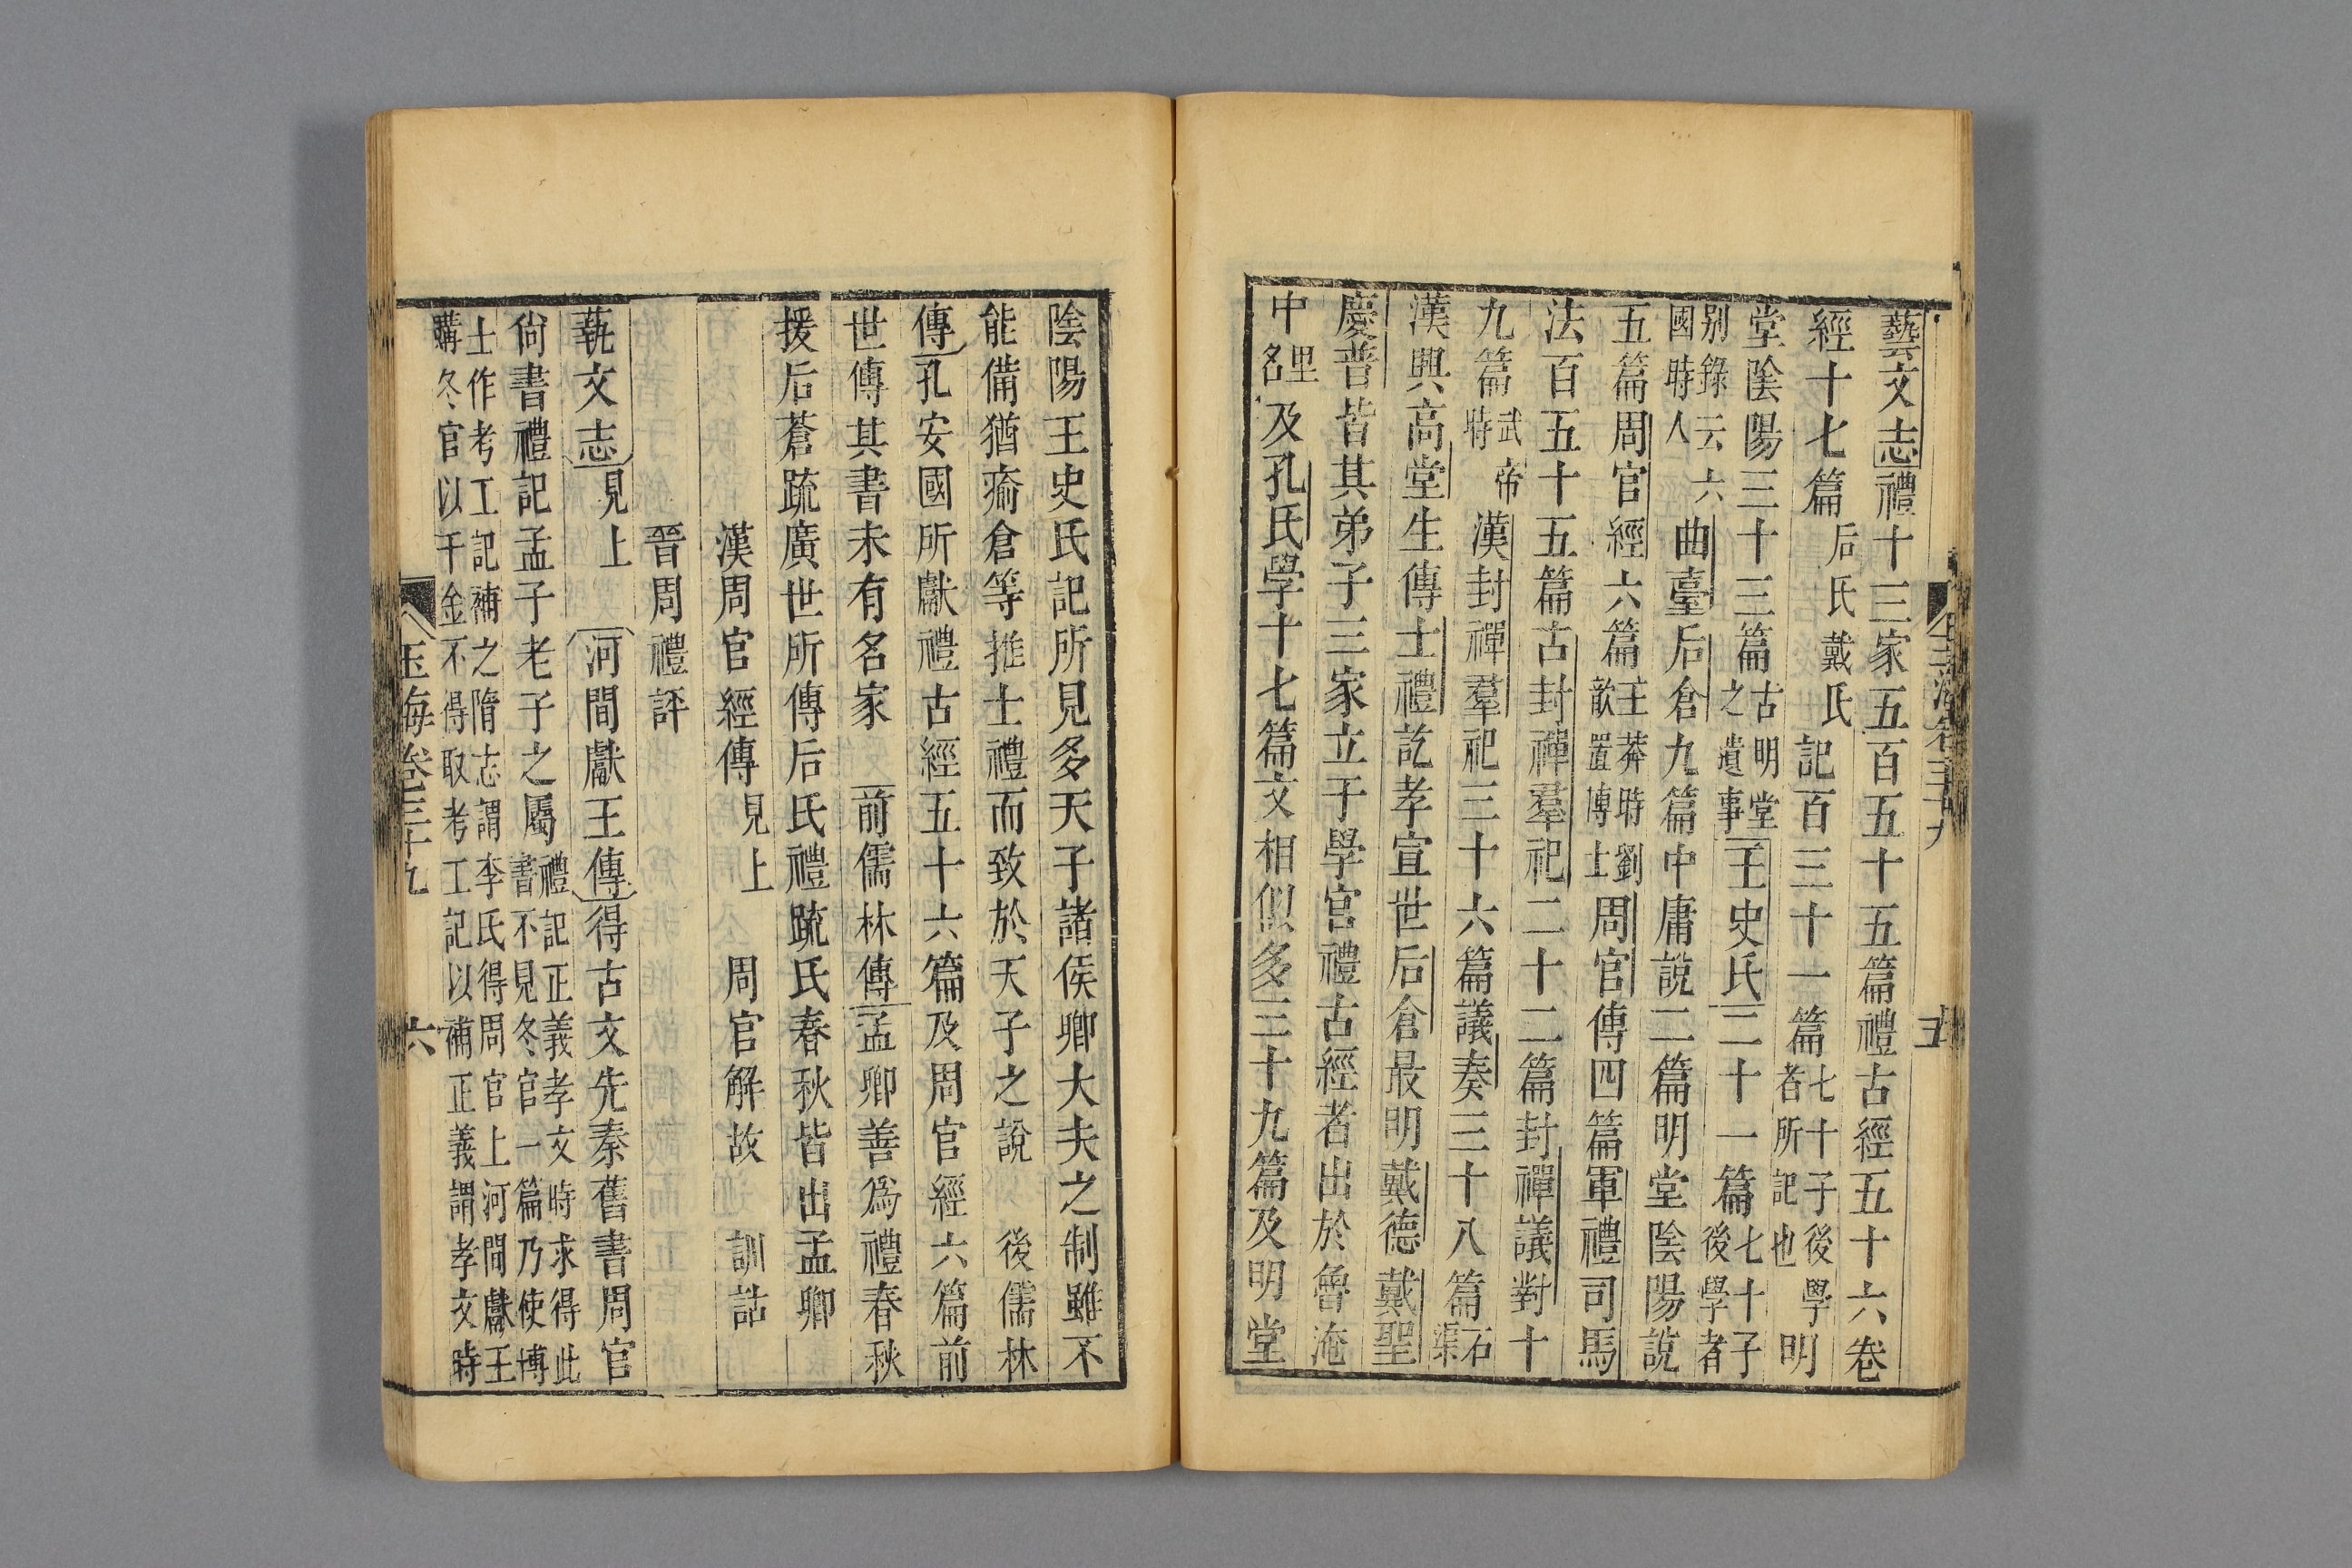 藝文志禮十三家五百五十五篇禮古經五十六卷
經十七篇后氏戴氏記百三十一篇七十子後學者所記也明
堂陰陽三十三篇古明堂之遺事王史氏二十一篇七十子後學者
别錄云六國時人曲臺后倉九篇中庸說二篇明堂陰陽說
五篇周官經六篇王莽時劉歆置博士周官傳四篇軍禮司馬
法百五十五篇古封禪羣祀二十二篇封禪議對十
九篇武帝時漢封禪羣祀三十六篇議奏三十八篇石渠
漢興高堂生傳士禮訖孝宣世后倉最明戴德戴聖
慶普皆其弟子三家立于學官禮古經者出於魯淹
中里名及孔氏學十七篇文相似多三十九篇及明堂
玉海卷三十九 五
陰陽王史氏記所見多天子諸侯卿大夫之制雖不
能備猶瘉倉等推士禮而致於天子之說 後儒林
傳孔安國所獻禮古經五十六篇及周官經六篇前
世傳其書未有名家 前儒林傳孟卿善爲禮春秋
授后蒼疏廣世所傳后氏禮疏氏春秋皆出孟卿
漢周官經傳見上 周官解故 訓詁
晉周禮評
蓺文志見上 河間獻王傳得古文先秦舊書周官
尙書禮記孟子老子之屬禮記正義孝文時求得此書不見冬官一篇乃使博
士作考工記補之隋志謂李氏得周官上河間獻王購冬官以千金不得取考工記以補正義謂孝文時
玉海卷三十九 六